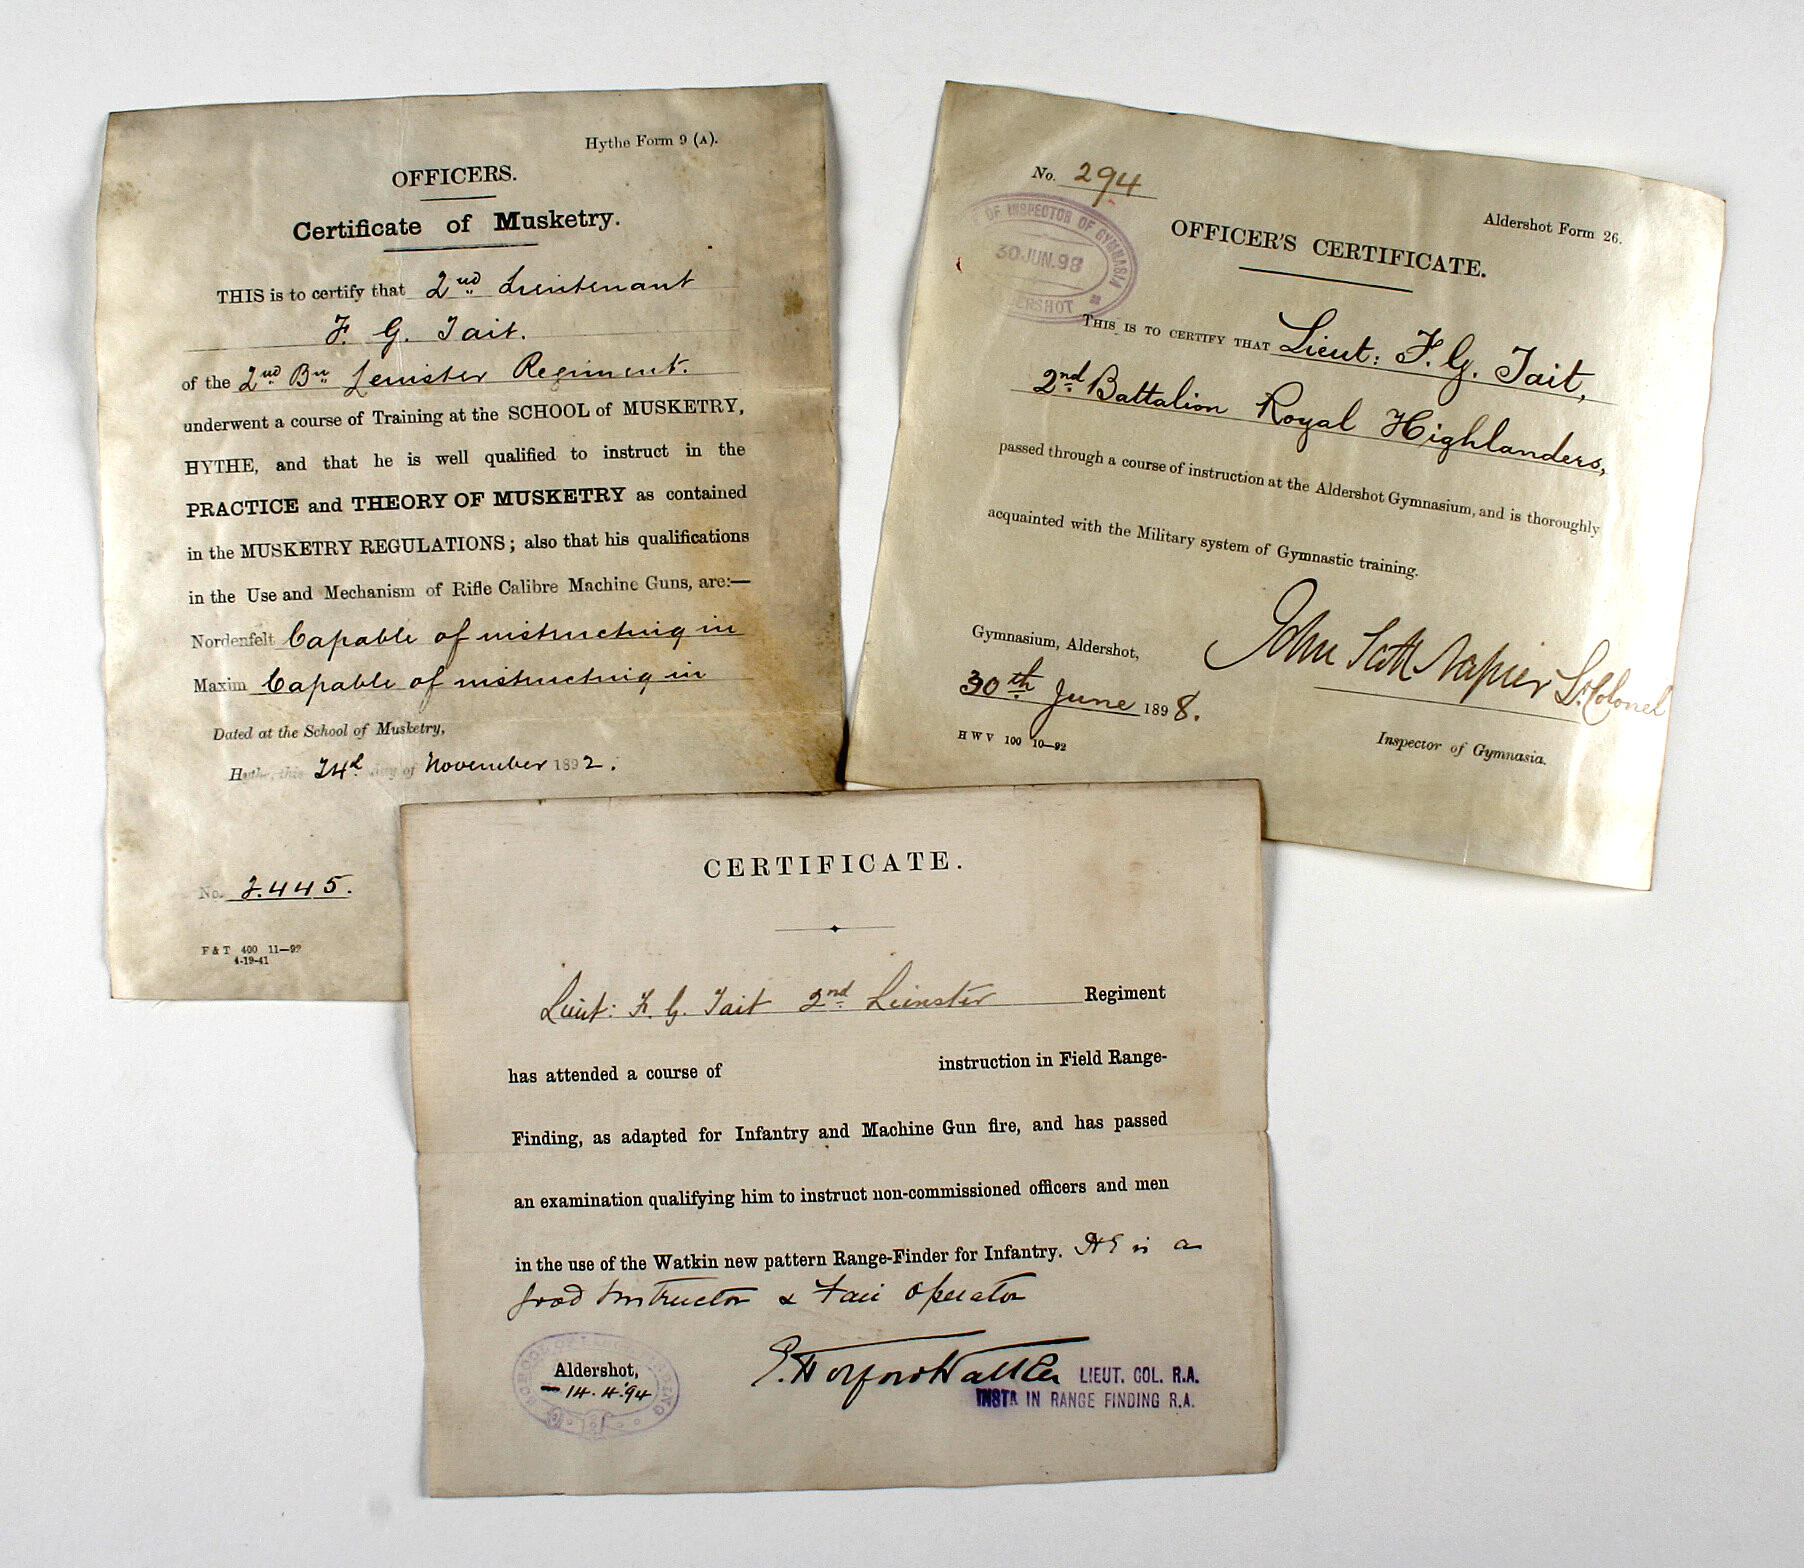 Hythe Form 9 (A).
OFFICERS.
Certificate of Musketry.
THIS is to certify that 2nd Lieutenant
F. G. Tait.
of the 2nd Bn Leinster Regiment.
underwent a course of Training at the SCHOOL of MUSKETRY,
HYTHE, and that he is well qualified to instruct in the
PRACTICE and THEORY OF MUSKETRY as contained
in the MUSKETRY REGULATIONS; also that his qualifications
in the Use and Mechanism of Rifle Calibre Machine Guns, are:—
Nordenfelt Capable of instructing in
Maxim Capable of instructing in
Dated at the School of Musketry,
Hythe, this 24th day of November 1892.
No. 2.445.
F & T 400 11—92
4-19-41
No. 294
Aldershot Form 26.
OF INSPECTOR OF GYMNASIA
30 JUN. 98
ALDERSHOT
OFFICER'S CERTIFICATE.
THIS IS TO CERTIFY THAT Lieut: F. G. Tait,
2nd Battalion Royal Highlanders,
passed through a course of instruction at the Aldershot Gymnasium, and is thoroughly
acquainted with the Military system of Gymnastic training.
Gymnasium, Aldershot,
30th June 1898.
John Scott Napier Lt Colonel
Inspector of Gymnasia.
H W V 100 10—92
CERTIFICATE.
Lieut: F. G. Tait 2nd Leinster Regiment
has attended a course of instruction in Field Range-
Finding, as adapted for Infantry and Machine Gun fire, and has passed
an examination qualifying him to instruct non-commissioned officers and men
in the use of the Watkin new pattern Range-Finder for Infantry. He is a
good Instructor & Fair Operator
Aldershot,
14.4.94
LIEUT. COL. R.A.
INSTR IN RANGE FINDING R.A.